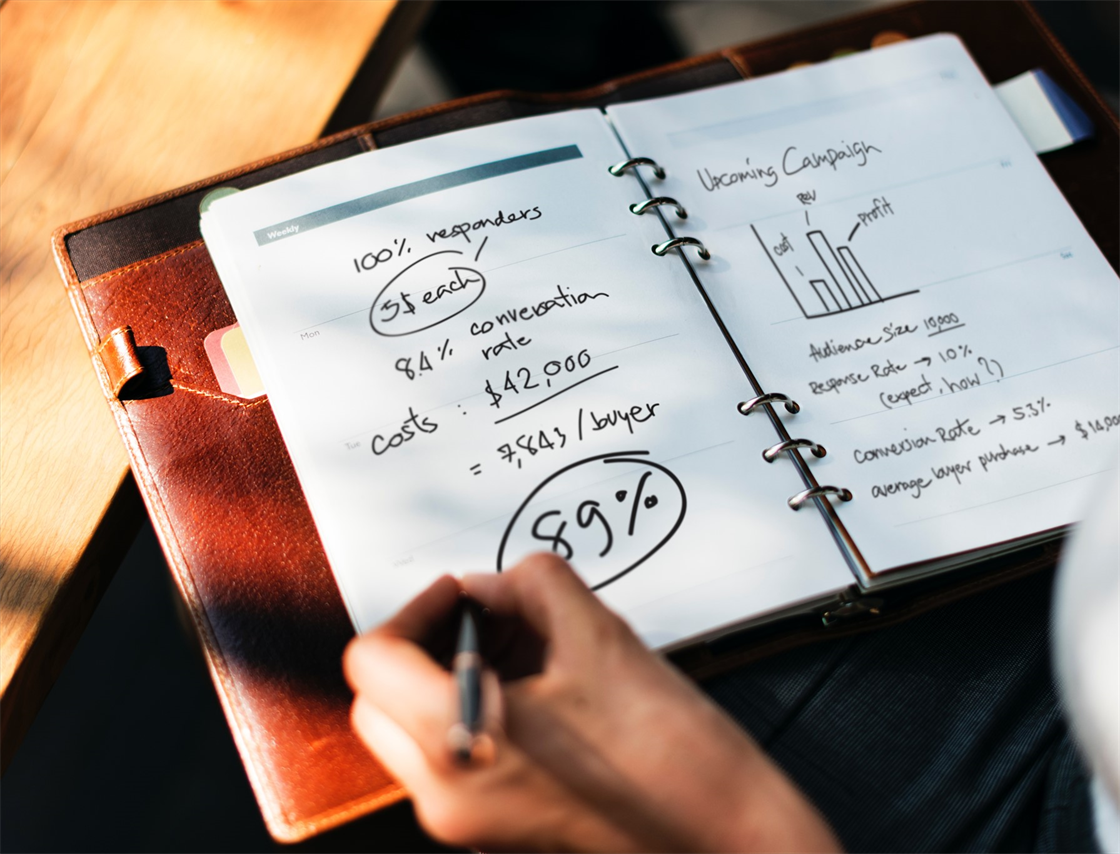 Weekly
100% responders
5$ each
Mon
84% conversation
rate
Tue
costs : $42,000
= 7,843 / buyer
89%
Upcoming Campaign
Rev
Profit
cost
Audience size 10,000
Response Rate → 10%
(expect, how?)
Conversion Rate → 5.3%
average buyer purchase →